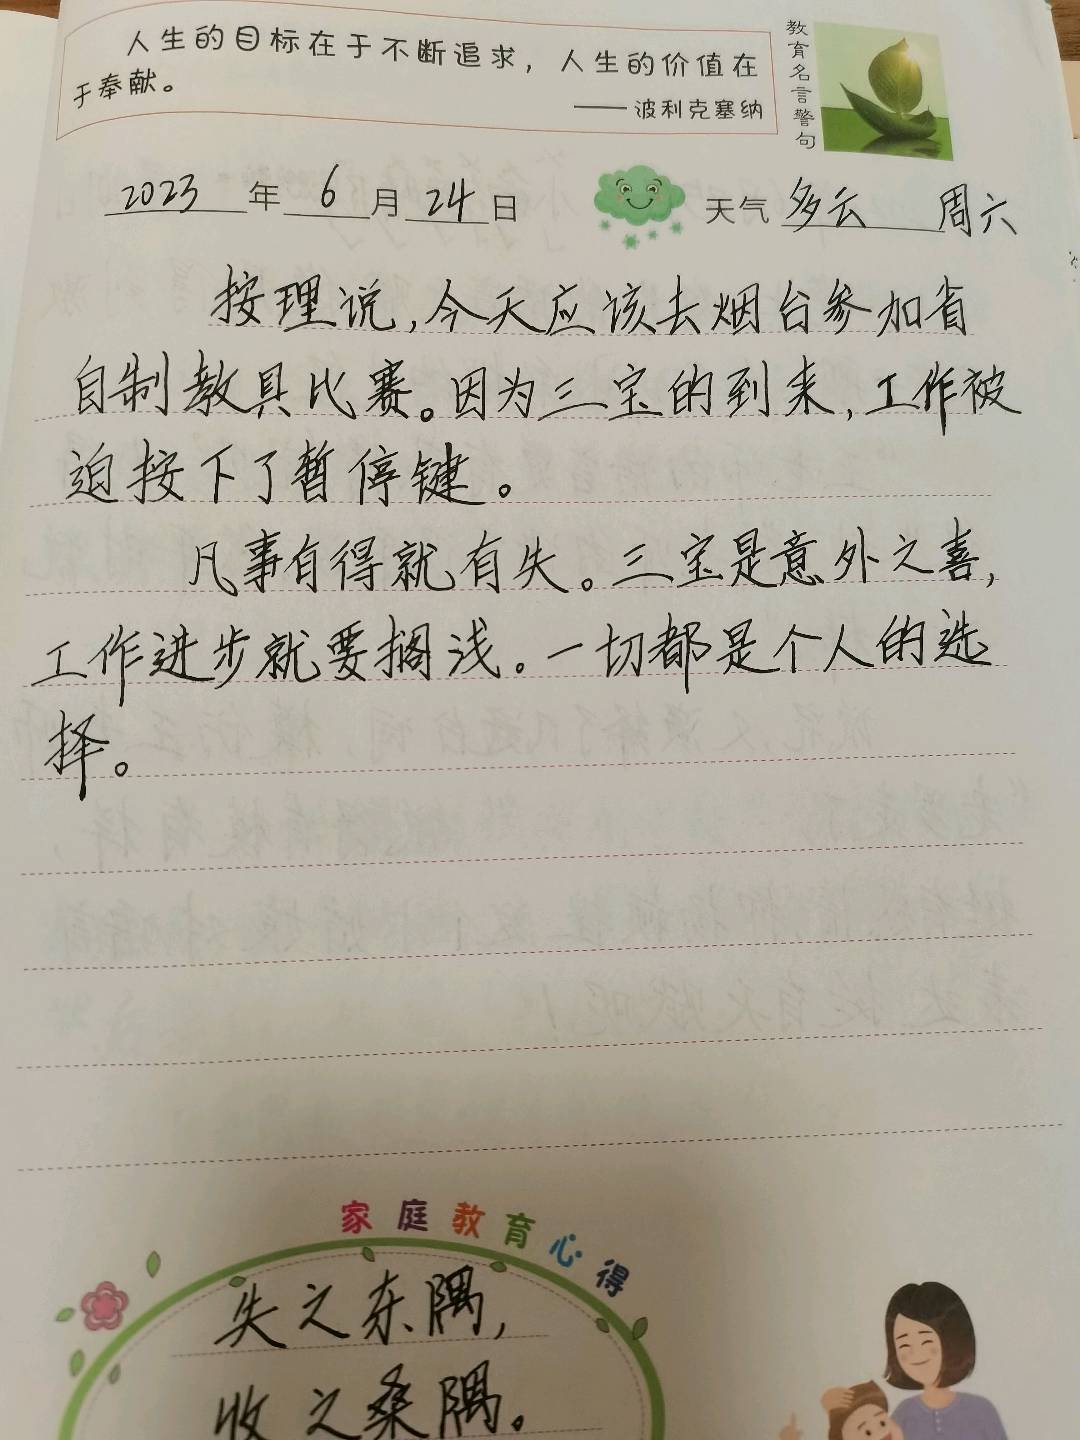 人生的目标在于不断追求，人生的价值在
于奉献。
——波利克塞纳
教育名言警句
2023年6月24日 天气 多云 周六
按理说,今天应该去烟台参加省
自制教具比赛。因为三宝的到来,工作被
迫按下了暂停键。
凡事有得就有失。三宝是意外之喜,
工作进步就要搁浅。一切都是个人的选
择。
家庭教育心得
失之东隅,
收之桑隅。